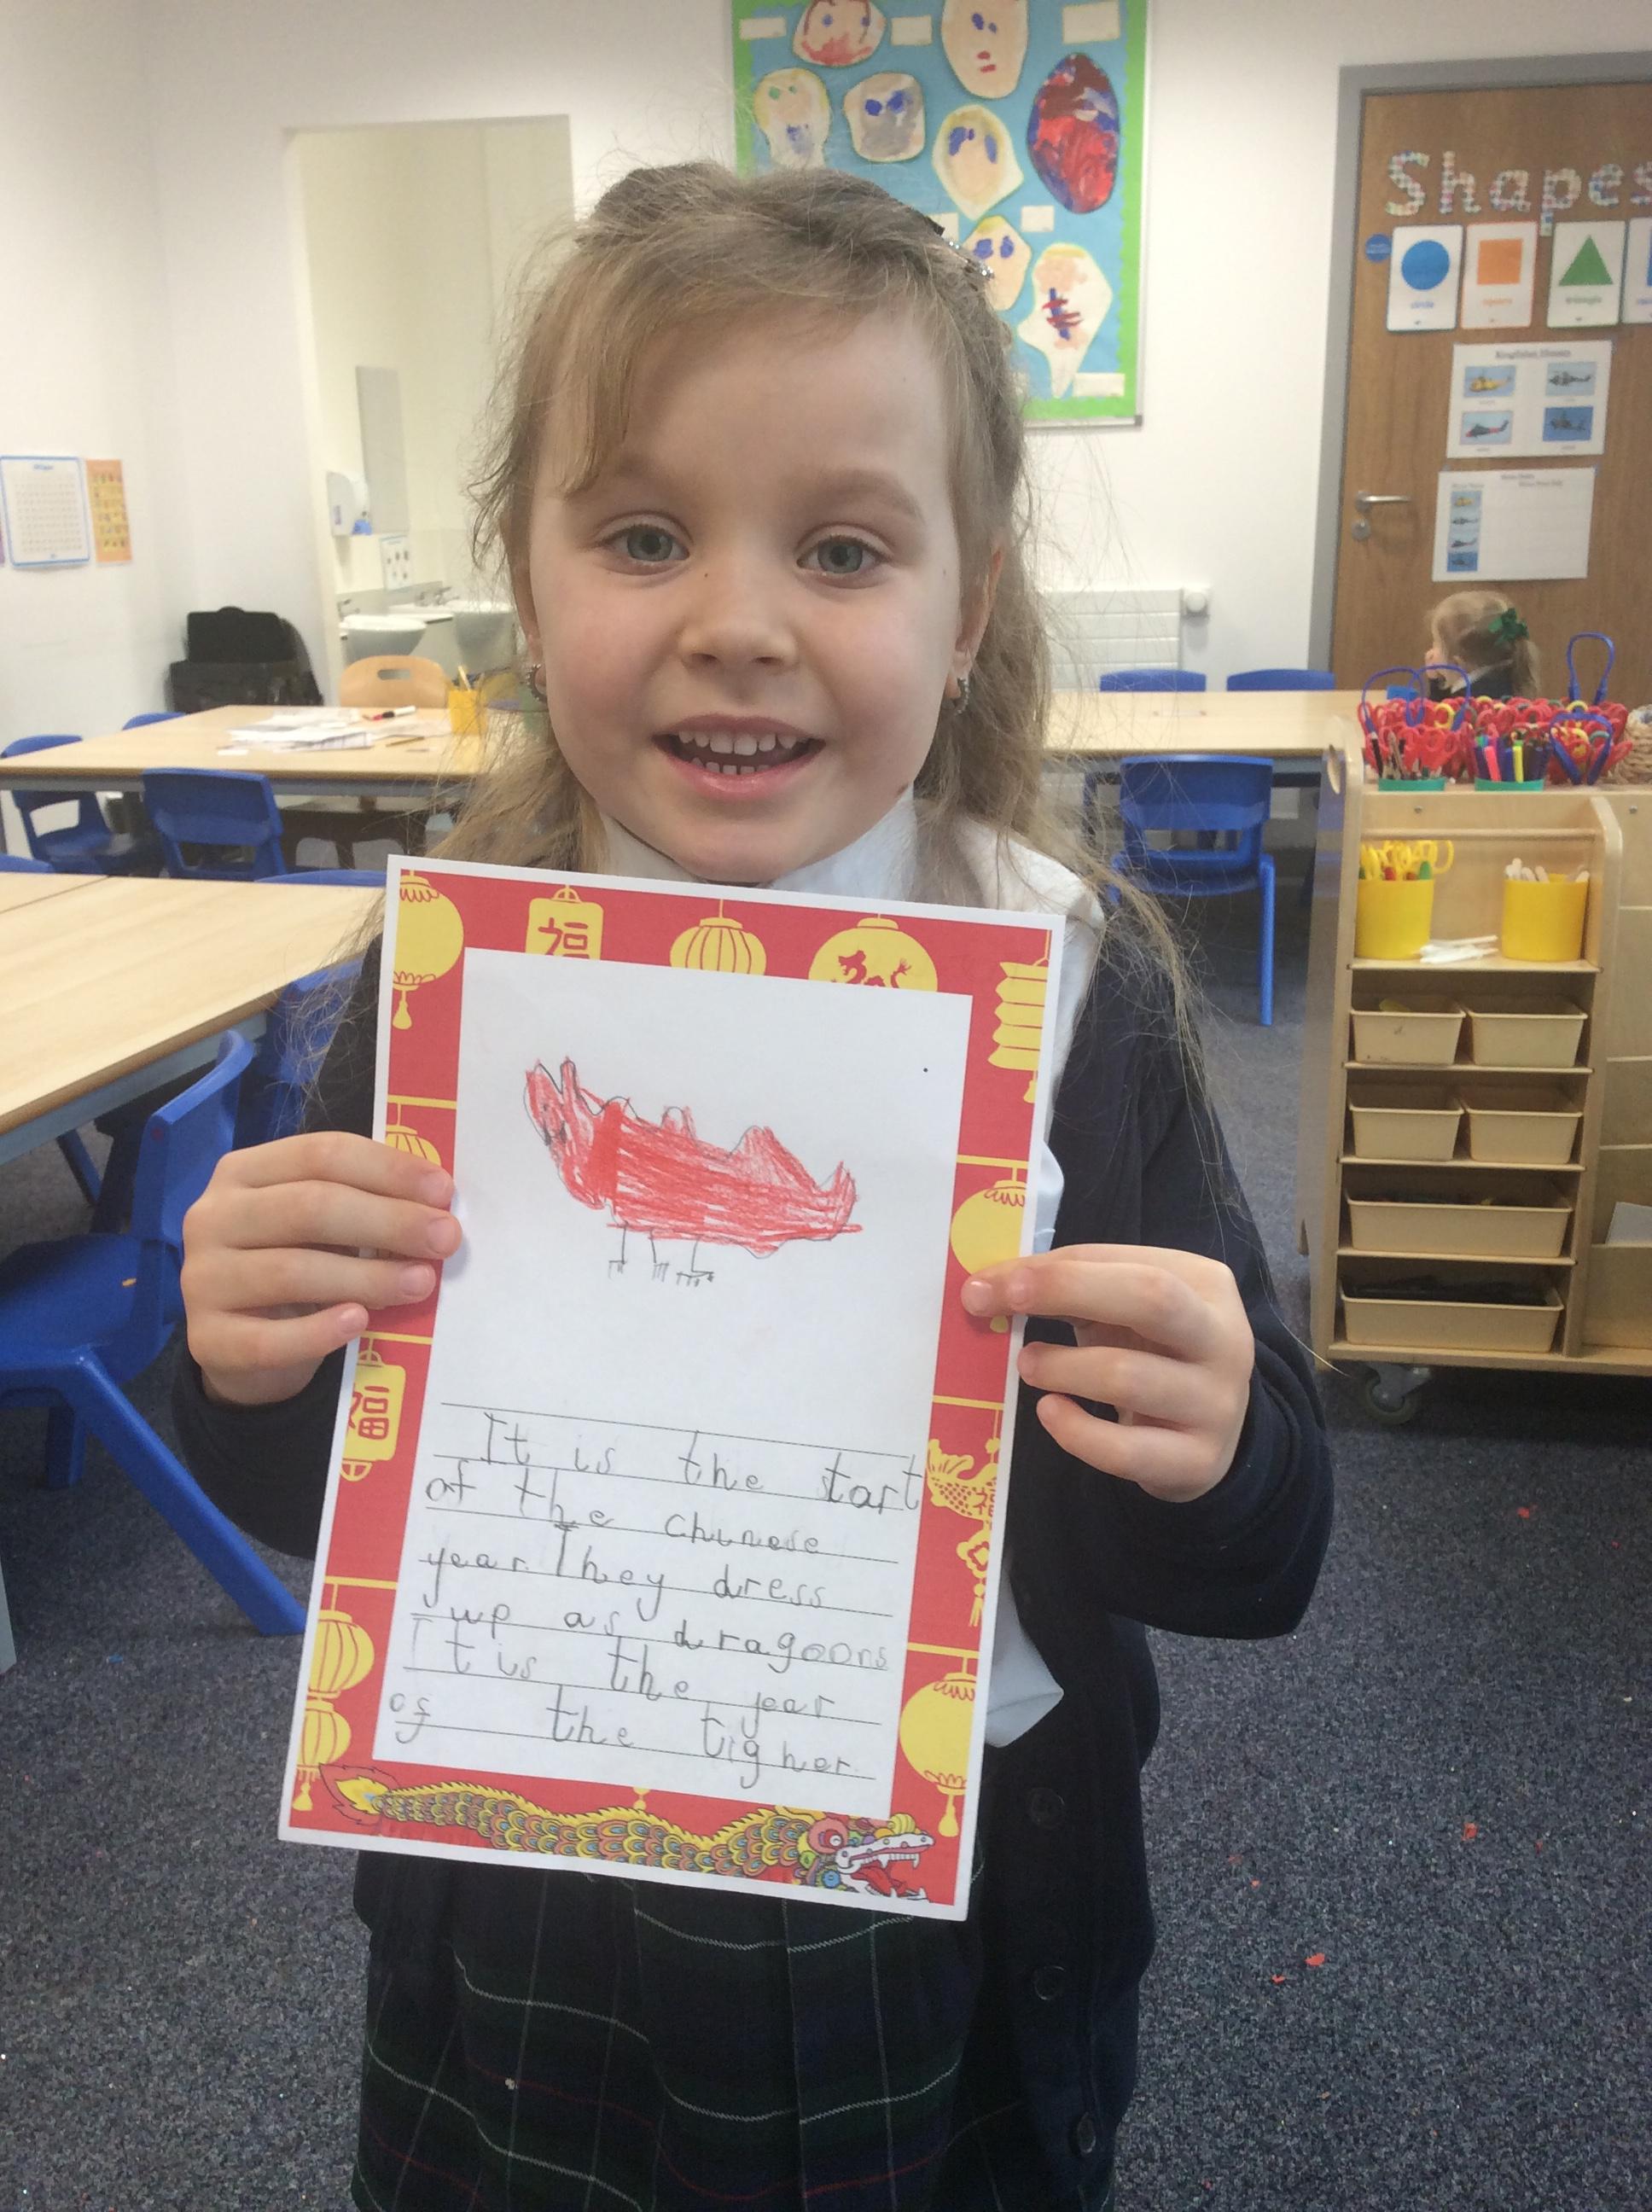 Shapes
circle
square
triangle
福
福
It is the start
of the chinese
year. They dress
up as dragoons
It is the year
of the tigher.